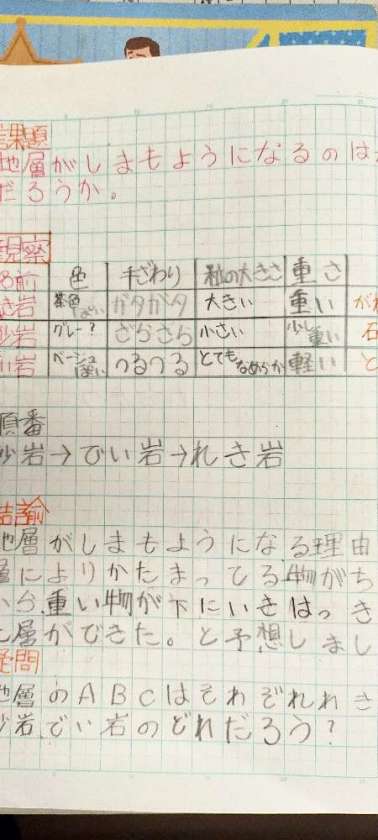 課題
地層がしまもようになるのは
だろうか。
観察
名前 色 手ざわり 粒の大きさ 重さ
き岩 茶色っぽい ガタガタ 大きい 重い
砂岩 グレー? ざらざら 小さい 少し重い
い岩 ベージュっぽい つるつる とてもなめらか 軽い
順番
砂岩→でい岩→れき岩
結論
地層がしまもようになる理由
層によりかたまってる物がち
い、重い物が下にいきはっき
層ができた。と予想しまし
疑問
地層のABCはそれぞれれき
砂岩でい岩のどれだろう?